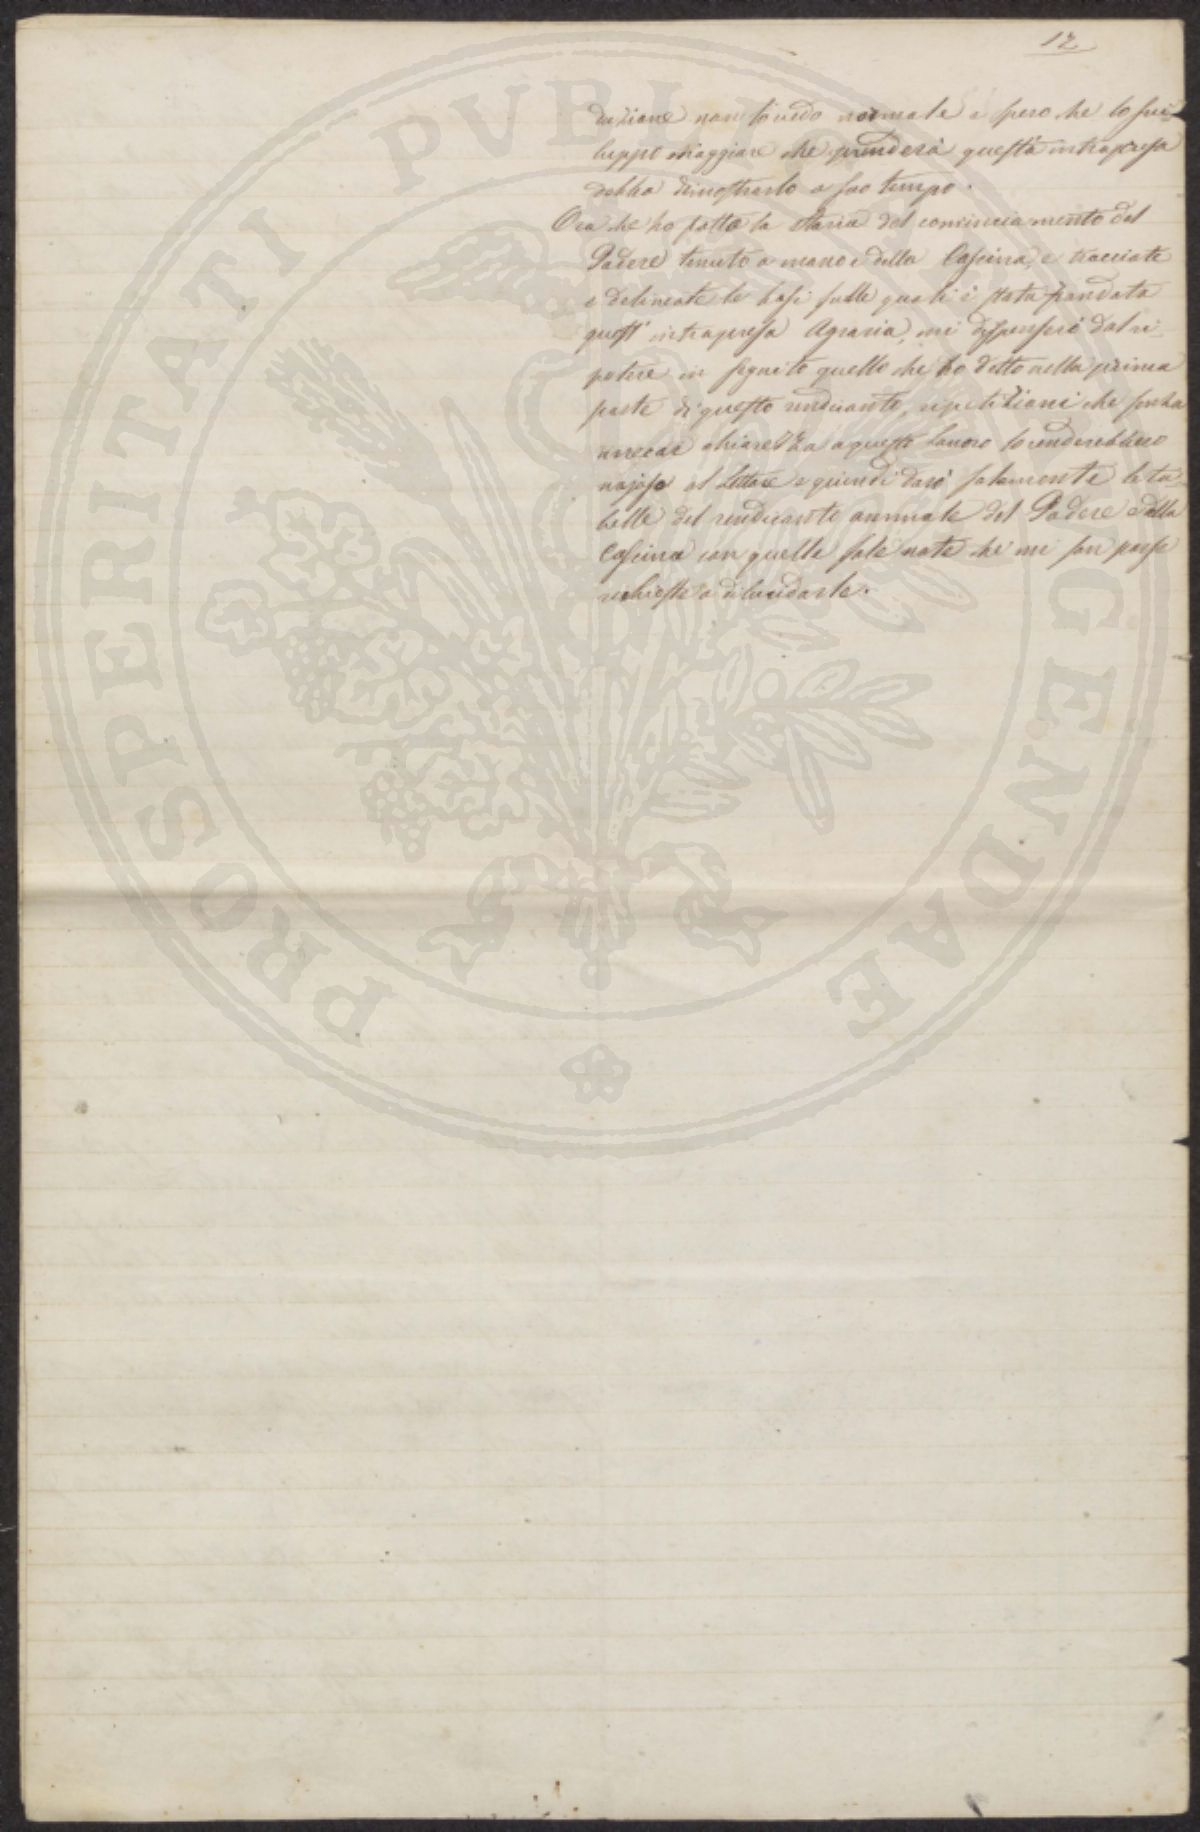 12
duzione non lo vedo normale e spero che lo svi-
luppo maggiore che prenderà questa intrapresa
debba dimostrarlo a suo tempo.
Ora che ho fatto la storia del cominciamento del
Podere tenuto a mano e della Cascina, e tracciate
e delineate le basi sulle quali è stata fondata
quest' intrapresa Agraria, mi dispenserò dal ri-
petere in seguito quello che ho detto nella prima
parte di questo rendiconto, ripetizioni che senza
arrecar chiarezza a questo lavoro lo renderebbero
nojoso al Lettore e quindi darò solamente le ta-
belle del rendiconto annuale del Podere e della
Cascina con quelle sole note che mi son parse
richieste a dilucidarle.
PROSPERITATI PVBLICAE AVGENDAE